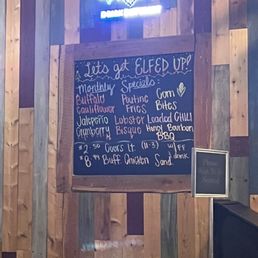 Let's get ELFED UP!
Monthly Specials:
Buffalo Cauliflower
Poutine Fries
Corn Bites
Jalapeño Cranberry
Lobster Bisque
Loaded CHILI
Honey Bourbon BBQ
$2.50 Coors Lt. (11-3)
$8.99 Buff. Chicken Sand. w/ FF drink